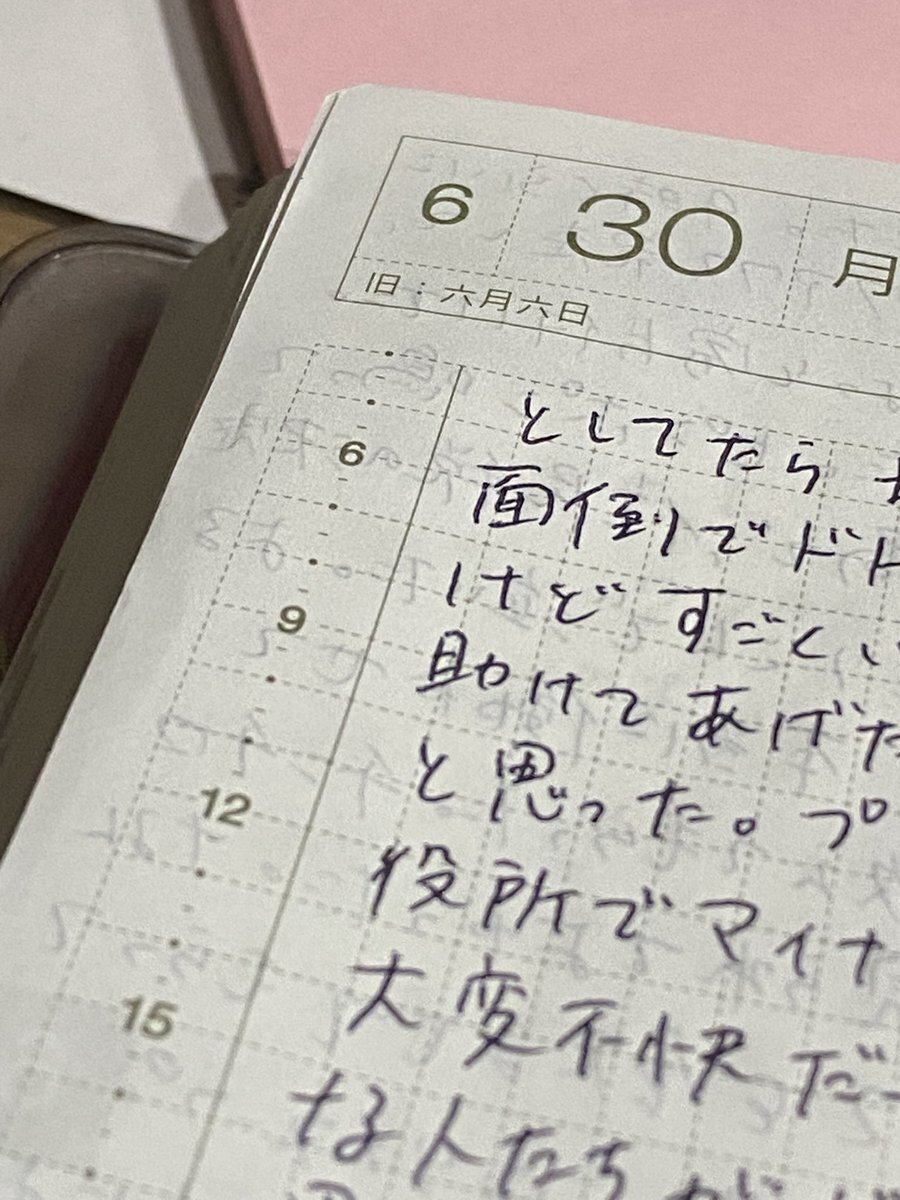 6 30 月
旧：六月六日
としてたら
6
面倒でド
けどすごく
9
助けてあげた
と思った。プ
12
役所でマイナ
大変不快だ
15
な人たちが